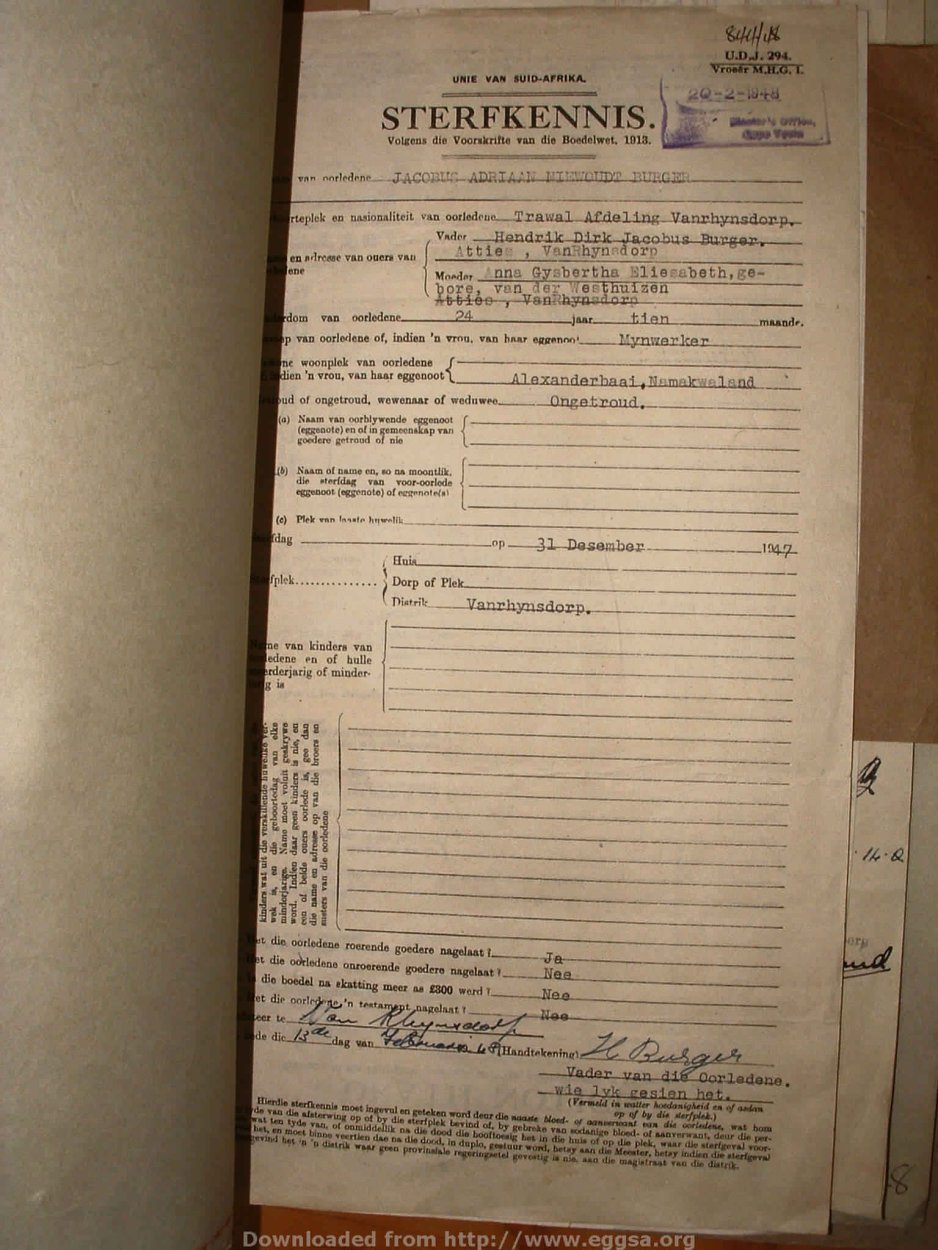 U.D.J. 294.
Vroeër M.H.G. 1.
UNIE VAN SUID-AFRIKA.
20-2-1948
STERFKENNIS.
Master's Office,
Cape Town
Volgens die Voorskrifte van die Boedelwet, 1913.
van oorledene JACOBUS ADRIAAN NIEWOUDT BURGER
rteplek en nasionaliteit van oorledene Trawal Afdeling Vanrhynsdorp.
Vader Hendrik Dirk Jacobus Burger.
en adresse van ouers van Atties , VanRhynsdorp
Moeder Anna Gysbertha Eliesabeth, ge-
bore, van der Westhuizen
Atties , VanRhynsdorp
rdom van oorledene 24 jaar tien maande.
p van oorledene of, indien 'n vrou, van haar eggenoot Mynwerker
ne woonplek van oorledene
indien 'n vrou, van haar eggenoot Alexanderbaai, Namakwaland
oud of ongetroud, wewenaar of weduwee Ongetroud.
(a) Naam van oorblywende eggenoot
(eggenote) en of in gemeenskap van
goedere getroud of nie
(b) Naam of name en, so na moontlik,
die sterfdag van voor-oorlede
eggenoot (eggenote) of eggenote(s)
(c) Plek van laaste huwelik
fdag op 31 Desember 1947
Huis
fplek Dorp of Plek
Distrik Vanrhynsdorp.
me van kinders van
ledene en of hulle
erderjarig of minder-
rig is
kinders wat uit die verskillende huwelike ver-
wek is, en die geboortedag van elke
minderjarige. Name moet voluit geskrywe
word. Indien daar geen kinders is nie, en
een of beide ouers oorlede is, gee dan
die name en adresse op van die broers en
susters van die oorledene
et die oorledene roerende goedere nagelaat? Ja
et die oorledene onroerende goedere nagelaat? Nee
die boedel na skatting meer as £300 werd? Nee
et die oorledene 'n testament nagelaat? Nee
eer te Van Rhynsdorp
ede die 13de dag van Februarie 48 (Handtekening) H Burger
Vader van die Oorledene.
wie lyk gesien het.
(Vermeld in watter hoedanigheid en of anders
op of by die sterfplek.)
Hierdie sterfkennis moet ingevul en geteken word deur die naaste bloed- of aanverwant van die oorledene, wat hom
de van die afsterwing op of by die sterfplek bevind of, by gebreke van sodanige bloed- of aanverwant, deur die per-
wat ten tyde van, of onmiddellik na die dood die hooftoesig het in die huis of op die plek, waar die sterfgeval voor-
het, en moet binne veertien dae na die dood, in duplo, gestuur word, hetsy aan die Meester, hetsy indien die sterfgeval
gevind het in 'n distrik waar geen provinsiale regeringsetel gevestig is nie, aan die magistraat van die distrik.
8
Downloaded from http://www.eggsa.org